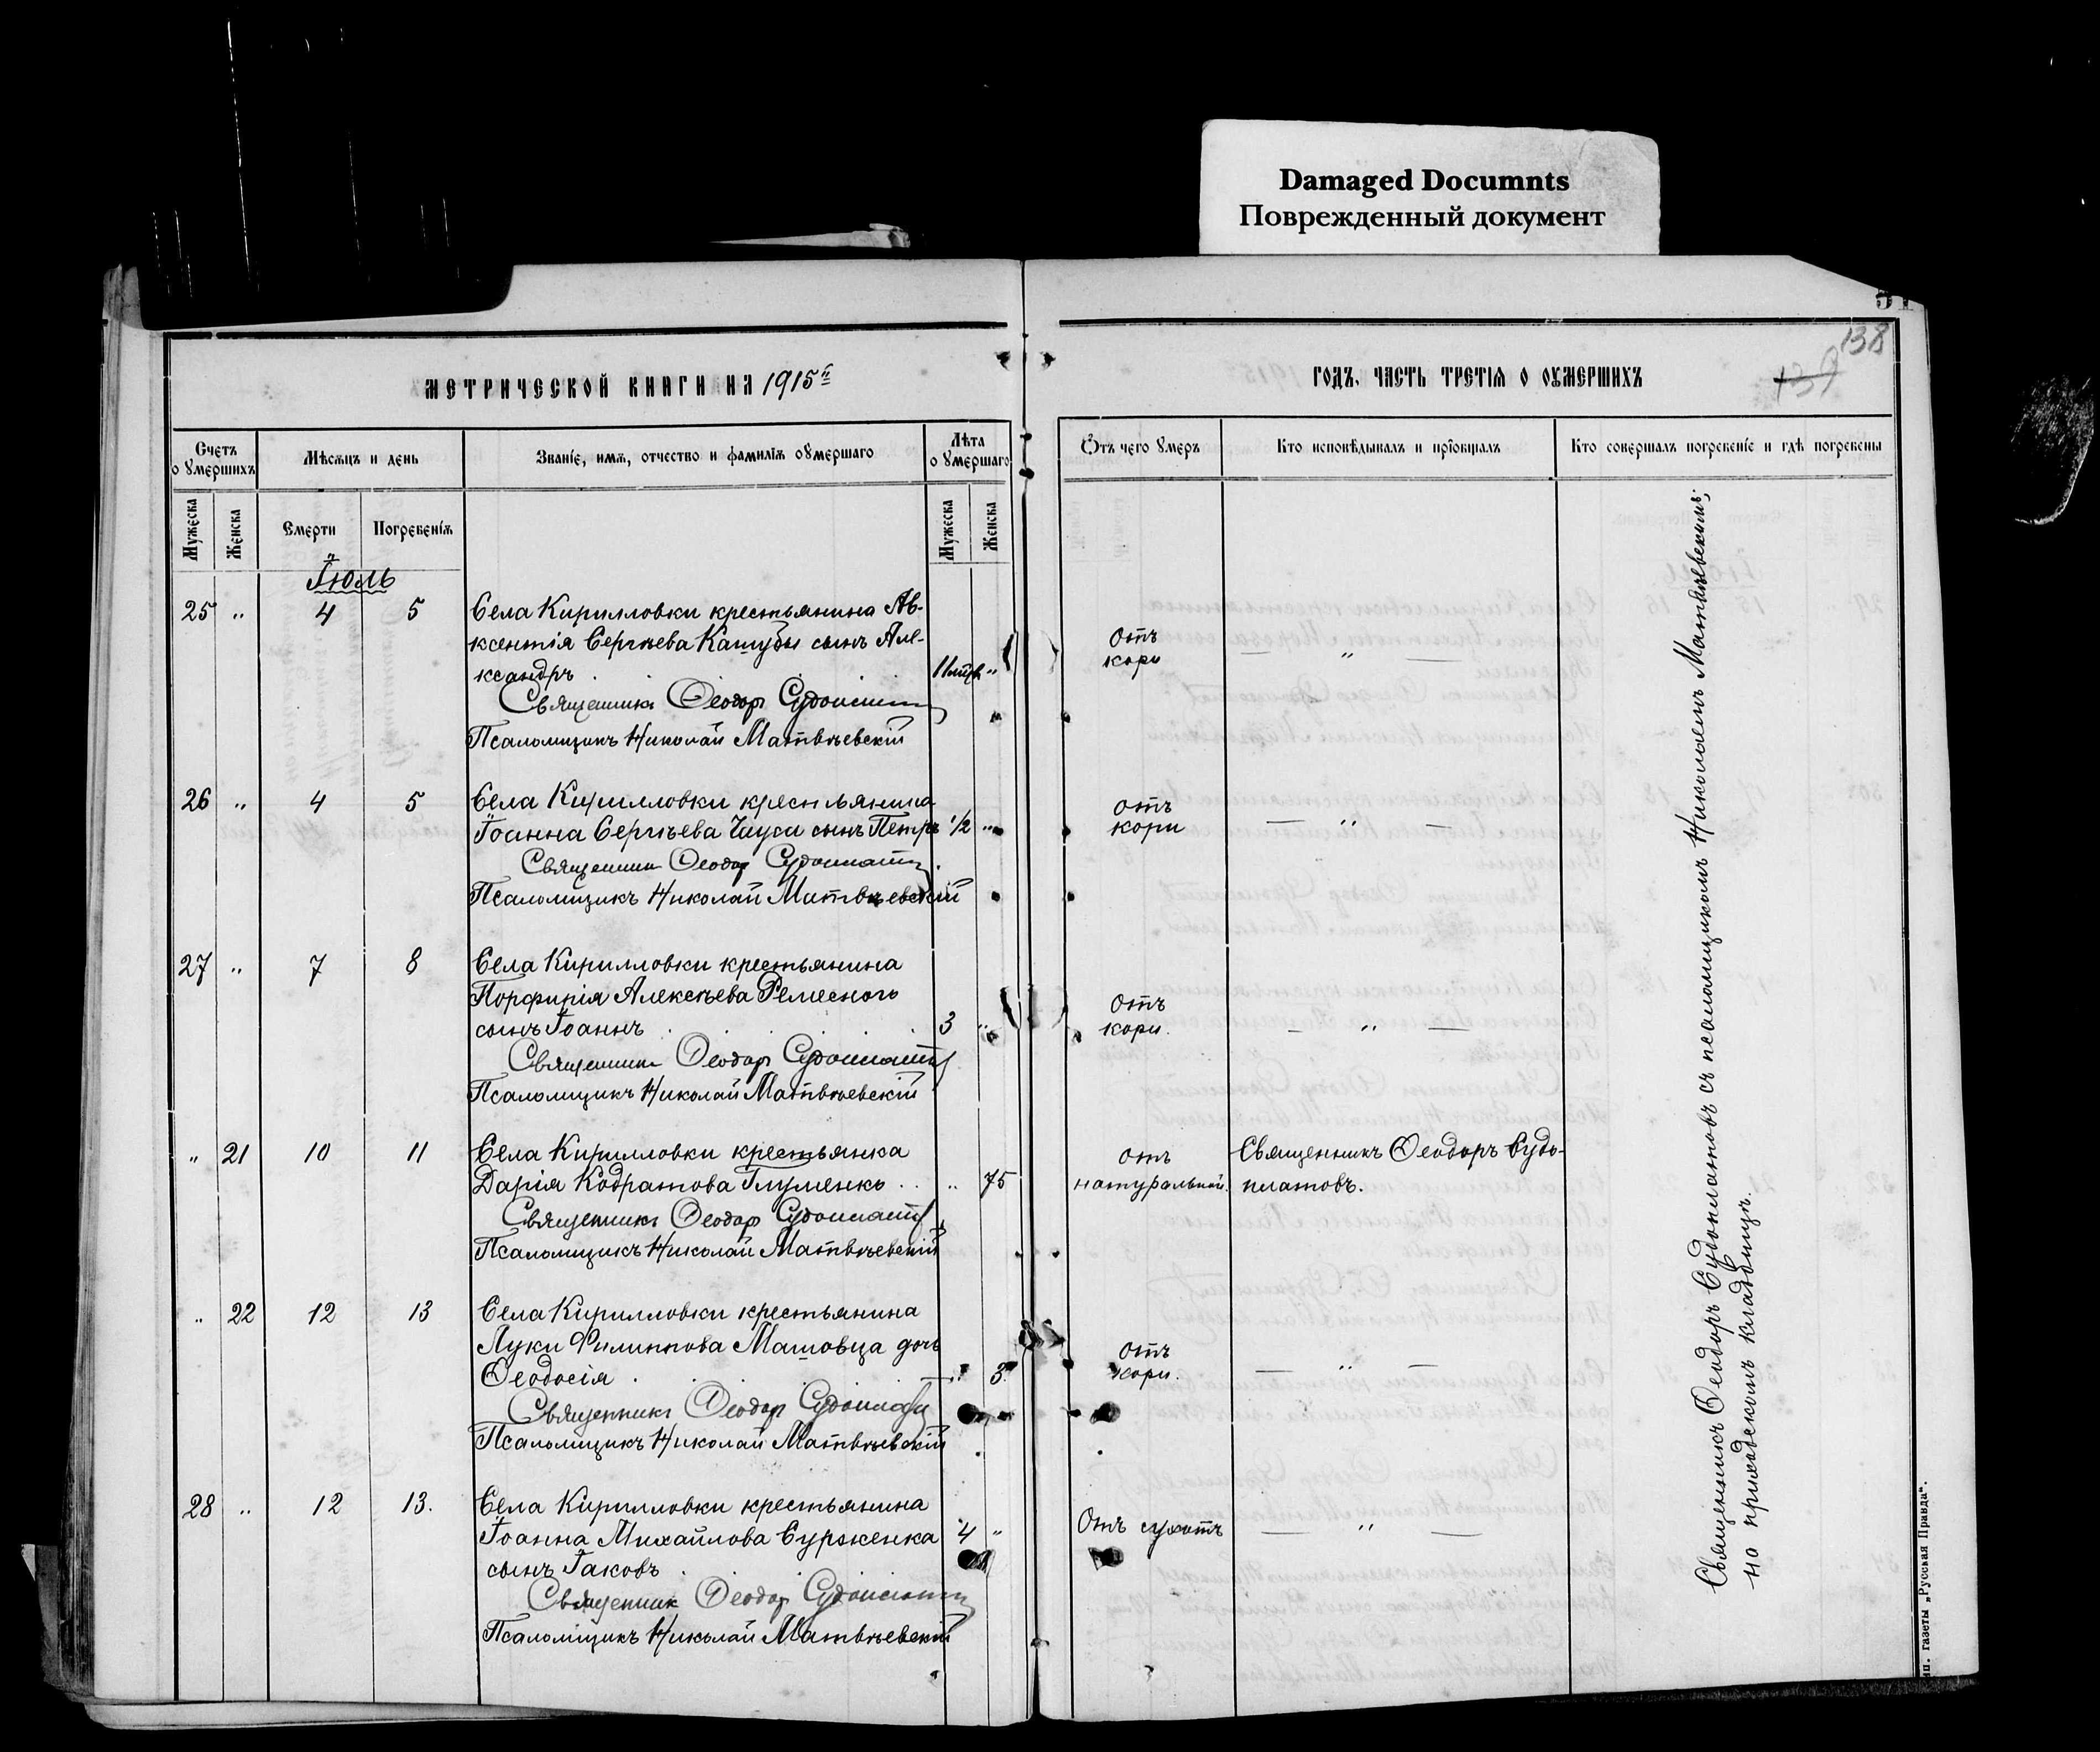 Damaged Documnts
Поврежденный документ
138
137
МЕТРИЧЕСКОЙ КНИГИ НА 1915й
ГОДЪ, ЧАСТЬ ТРЕТІЯ О ОУМЕРШИХЪ
Счетъ о умершихъ
Мѣсяцъ и день
Званіе, имя, отчество и фамилія оумершаго
Лѣта о умершаго
Отъ чего умеръ
Кто исповѣдывалъ и пріобщалъ
Кто совершалъ погребеніе и гдѣ погребены
Мужеска
Женска
Смерти
Погребенія
Мужеска
Женска
Іюль
25 " 4 5 Села Кирилловки крестьянина Ав-
ксентія Сергѣева Кашубы сынъ Але-
ксандръ 11 мцв "
Отъ
кори — " —
Священникъ Ѳеодор Судоплатов
Псаломщикъ Николай Матвѣевскій
26 " 4 5 Села Кирилловки крестьянина
Іоанна Сергѣева Чауса сынъ Петръ 1/2 "
Отъ
кори — " —
Священник Ѳеодор Судоплатов
Псаломщикъ Николай Матвѣевскій
27 " 7 8 Села Кирилловки крестьянина
Порфирія Алексѣева Ремесного
сынъ Іоаннъ 3 "
Отъ
кори. — " —
Священник Ѳеодор Судоплатов
Псаломщикъ Николай Матвѣевскій
" 21 10 11 Села Кирилловки крестьянка
Дарія Кодратова Глуменко " 75
отъ
натуральной.
Священникъ Ѳеодоръ Судо-
платовъ.
Священникъ Ѳеодор Судоплатов
Псаломщикъ Николай Матвѣевскій
" 22 12 13 Села Кирилловки крестьянина
Луки Филиппова Машовца дочь
Ѳеодосія " 3
Отъ
кори. — " —
Священникъ Ѳеодор Судоплатов
Псаломщикъ Николай Матвѣевскій
28 " 12 13. Села Кирилловки крестьянина
Іоанна Михайлова Сурженка 4 "
сынъ Іаковъ
Отъ сухотъ — " —
Священник Ѳеодор Судоплатов
Псаломщикъ Николай Матвѣевскій
Священникъ Ѳеодоръ Судоплатовъ съ псаломщикомъ Николаемъ Матвѣевскимъ;
на приходскомъ кладбищѣ.
газеты „Русская Правда“.